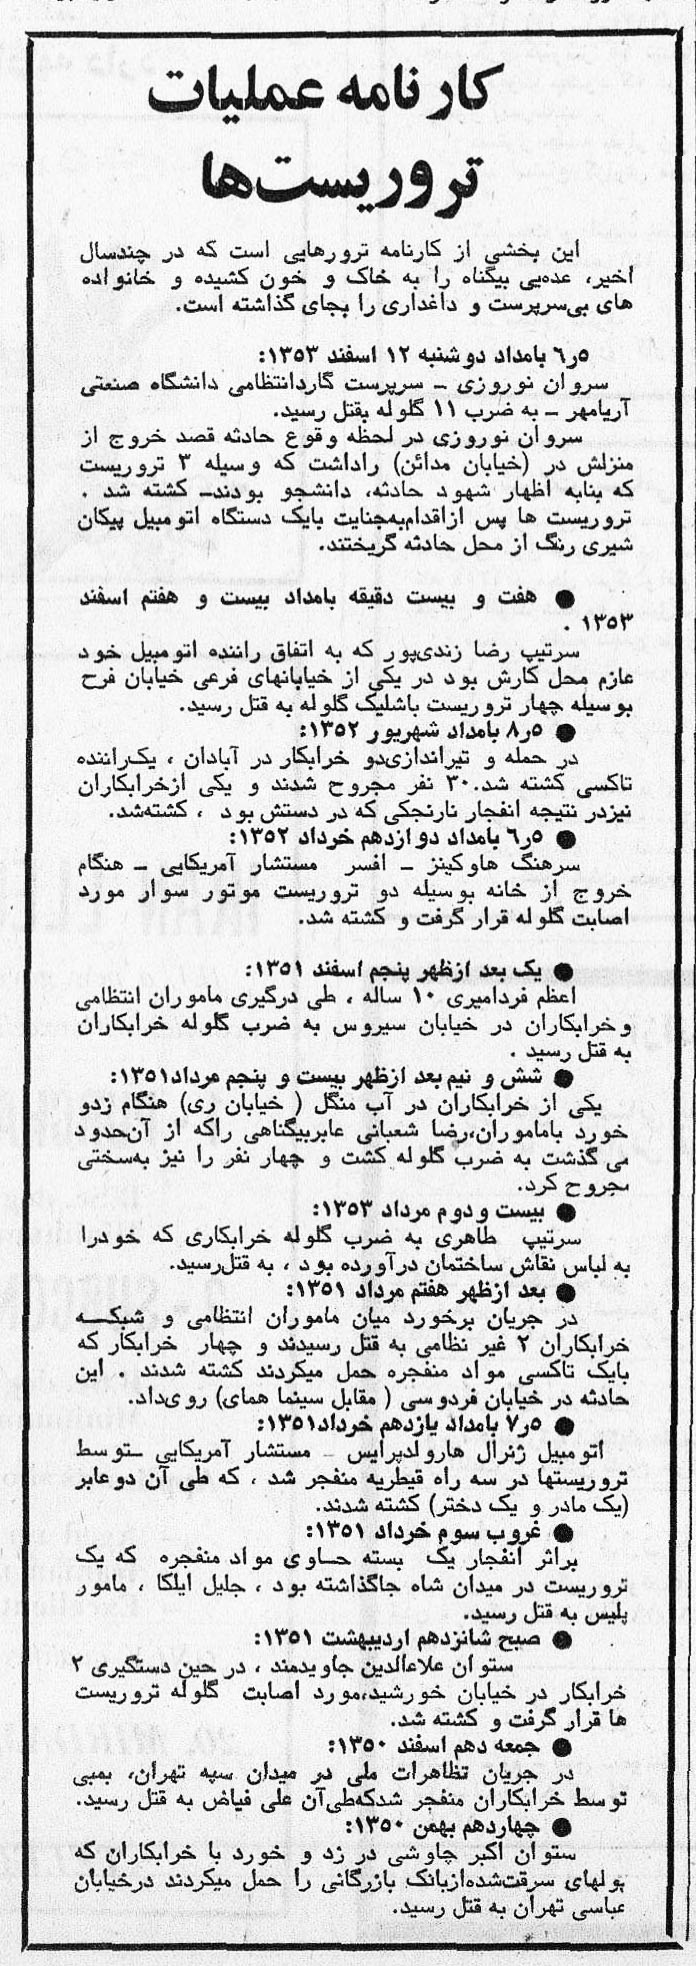 کارنامه عملیات
تروریست‌ها
این بخشی از کارنامه ترورهایی است که در چندسال
اخیر، عده‌یی بیگناه را به خاک و خون کشیده و خانواده
های بی‌سرپرست و داغداری را بجای گذاشته است.
۵ر۶ بامداد دوشنبه ۱۲ اسفند ۱۳۵۳:
سروان نوروزی – سرپرست گاردانتظامی دانشگاه صنعتی
آریامهر – به ضرب ۱۱ گلوله بقتل رسید.
سروان نوروزی در لحظه وقوع حادثه قصد خروج از
منزلش در (خیابان مدائن) راداشت که وسیله ۳ تروریست
که بنابه اظهار شهود حادثه، دانشجو بودند– کشته شد .
تروریست ها پس ازاقدام‌به‌جنایت بایک دستگاه اتومبیل پیکان
شیری رنگ از محل حادثه گریختند.
● هفت و بیست دقیقه بامداد بیست و هفتم اسفند
۱۳۵۳ .
سرتیپ رضا زندی‌پور که به اتفاق راننده اتومبیل خود
عازم محل کارش بود در یکی از خیابانهای فرعی خیابان فرح
بوسیله چهار تروریست باشلیک گلوله به قتل رسید.
● ۵ر۸ بامداد شهریور ۱۳۵۲:
در حمله و تیراندازی‌دو خرابکار در آبادان ، یک‌راننده
تاکسی کشته شد. ۳۰ نفر مجروح شدند و یکی ازخرابکاران
نیزدر نتیجه انفجار نارنجکی که در دستش بود ، کشته‌شد.
● ۵ر۶ بامداد دوازدهم خرداد ۱۳۵۲:
سرهنگ هاوکینز – افسر مستشار آمریکایی – هنگام
خروج از خانه بوسیله دو تروریست موتور سوار مورد
اصابت گلوله قرار گرفت و کشته شد.
● یک بعد ازظهر پنجم اسفند ۱۳۵۱:
اعظم فردامیری ۱۰ ساله ، طی درگیری ماموران انتظامی
وخرابکاران در خیابان سیروس به ضرب گلوله خرابکاران
به قتل رسید .
● شش و نیم بعد ازظهر بیست و پنجم مرداد۱۳۵۱:
یکی از خرابکاران در آب منگل ( خیابان ری) هنگام زدو
خورد باماموران،رضا شعبانی عابربیگناهی راکه از آن‌حدود
می گذشت به ضرب گلوله کشت و چهار نفر را نیز به‌سختی
مجروح کرد.
● بیست ودوم مرداد ۱۳۵۳:
سرتیپ طاهری به ضرب گلوله خرابکاری که خودرا
به لباس نقاش ساختمان درآورده بود ، به قتل‌رسید.
● بعد ازظهر هفتم مرداد ۱۳۵۱:
در جریان برخورد میان ماموران انتظامی و شبکه
خرابکاران ۲ غیر نظامی به قتل رسیدند و چهار خرابکار که
بایک تاکسی مواد منفجره حمل میکردند کشته شدند . این
حادثه در خیابان فردوسی ( مقابل سینما همای) روی‌داد.
● ۵ر۷ بامداد یازدهم خرداد۱۳۵۱:
اتومبیل ژنرال هارولدپرایس – مستشار آمریکایی –توسط
تروریستها در سه راه قیطریه منفجر شد ، که طی آن دوعابر
(یک مادر و یک دختر) کشته شدند.
● غروب سوم خرداد ۱۳۵۱:
براثر انفجار یک بسته حاوی مواد منفجره که یک
تروریست در میدان شاه جاگذاشته بود ، جلیل ایلکا ، مامور
پلیس به قتل رسید.
● صبح شانزدهم اردیبهشت ۱۳۵۱:
ستوان علاءالدین جاویدمند ، در حین دستگیری ۲
خرابکار در خیابان خورشید،مورد اصابت گلوله تروریست
ها قرار گرفت و کشته شد.
● جمعه دهم اسفند ۱۳۵۰:
در جریان تظاهرات ملی در میدان سپه تهران، بمبی
توسط خرابکاران منفجر شدکه‌طی‌آن علی فیاض به قتل رسید.
● چهاردهم بهمن ۱۳۵۰:
ستوان اکبر چاوشی در زد و خورد با خرابکاران که
پولهای سرقت‌شده‌ازبانک بازرگانی را حمل میکردند درخیابان
عباسی تهران به قتل رسید.